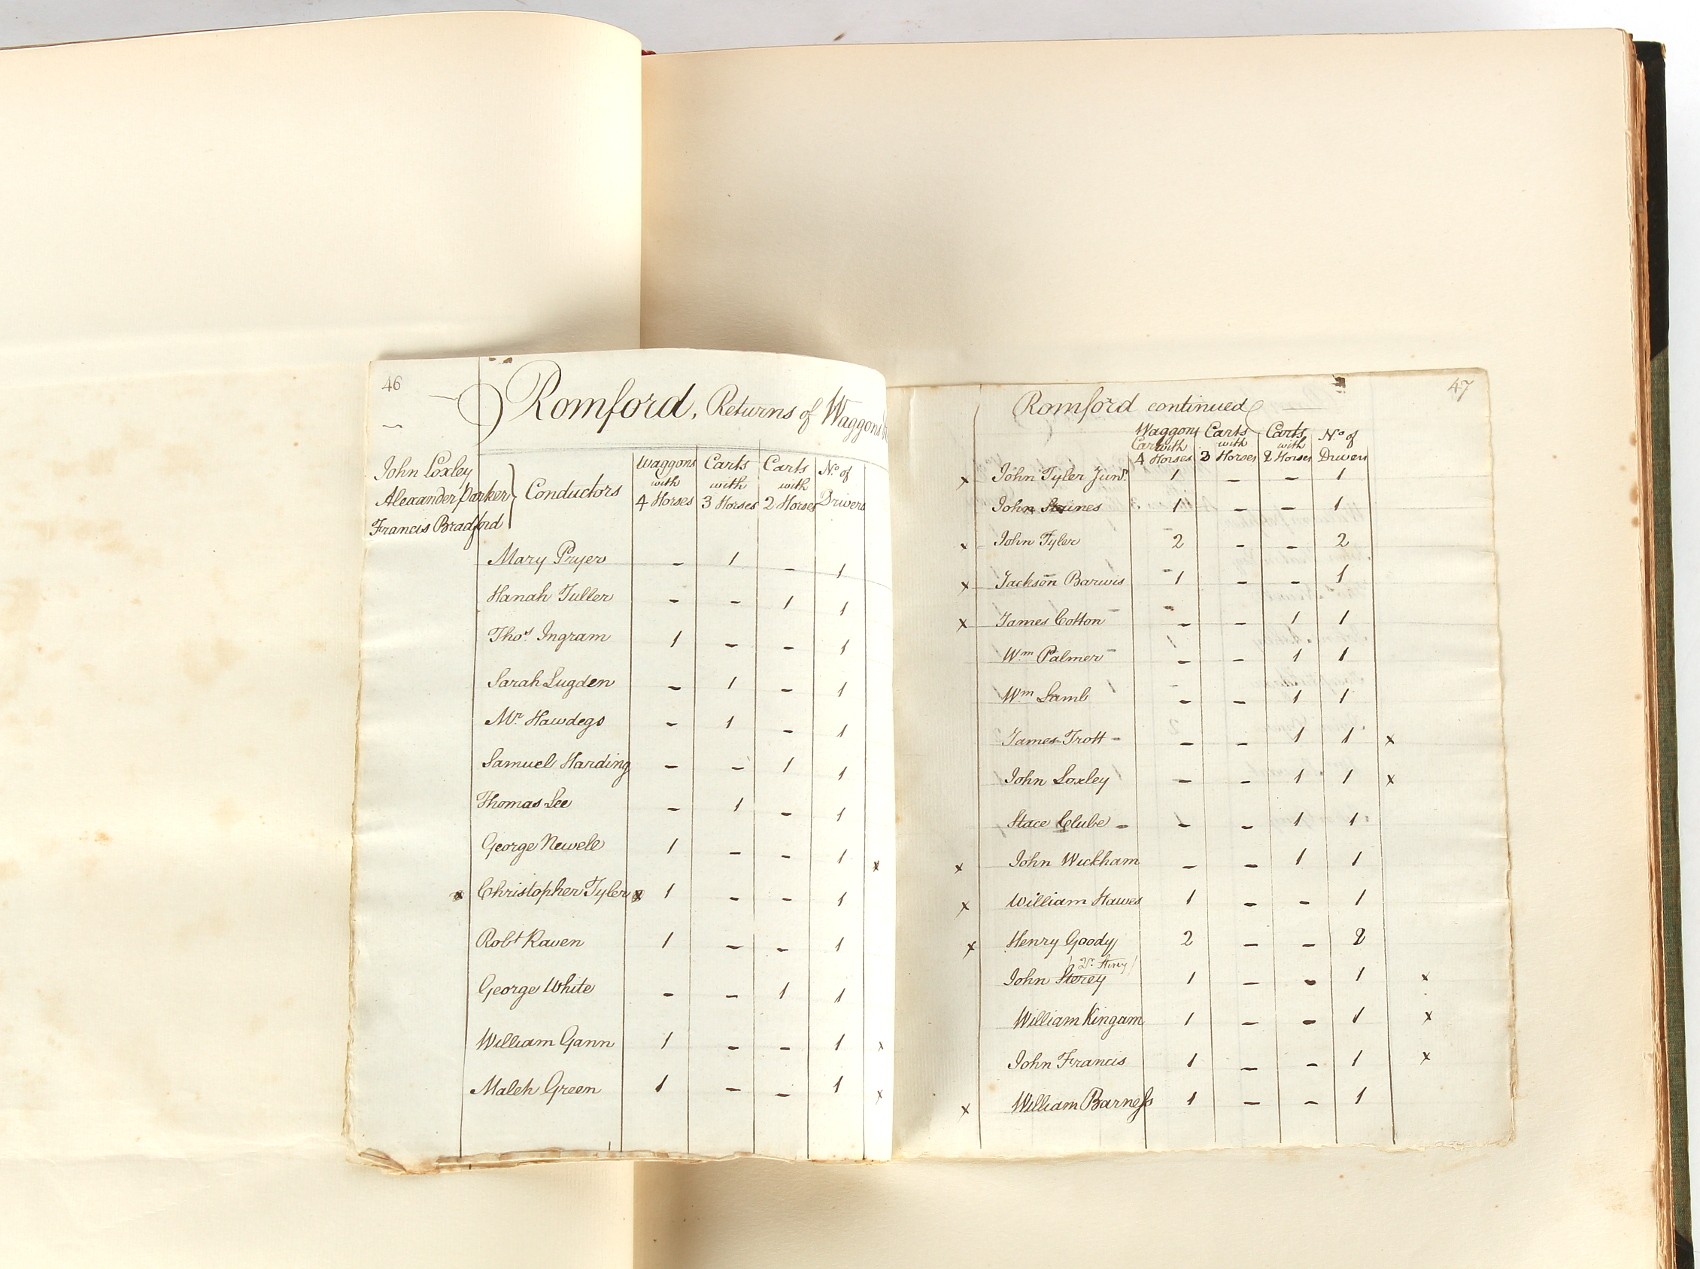 46
Romford, Returns of Waggons
John Loxley
Alexander Parker } Conductors
Francis Bradford
Waggons with 4 Horses | Carts with 3 Horses | Carts with 2 Horses | No. of Drivers
Mary Pryer - 1 - 1
Hanah Fuller - - 1 1
Thos. Ingram 1 - - 1
Sarah Lugden - 1 - 1
Mr. Hawdegs - 1 - 1
Samuel Harding - - 1 1
Thomas Lee - 1 - 1
George Newell 1 - - 1 x
x Christopher Tyler x 1 - - 1
Robt Raven 1 - - 1
George White - - 1 1
William Gann 1 - - 1 x
Maleh Green 1 - - 1 x
47
Romford continued
Waggons with 4 Horses | Carts with 3 Horses | Carts with 2 Horses | No. of Drivers
x John Tyler Junr. 1 - - 1
John Staines 1 - - 1
x John Tyler 2 - - 2
x Jackson Barwis 1 - - 1
x James Cotton - - 1 1
Wm. Palmer - - 1 1
Wm Lamb - - 1 1
James Trott - - 1 1 x
John Loxley - - 1 1 x
Stace Clube - - 1 1
x John Wickham - - 1 1
x William Hawes 1 - - 1
x Henry Goody 2 - - 2
John Storey 1 - - 1 x
William Kingam 1 - - 1 x
John Francis 1 - - 1 x
x William Barness 1 - - 1